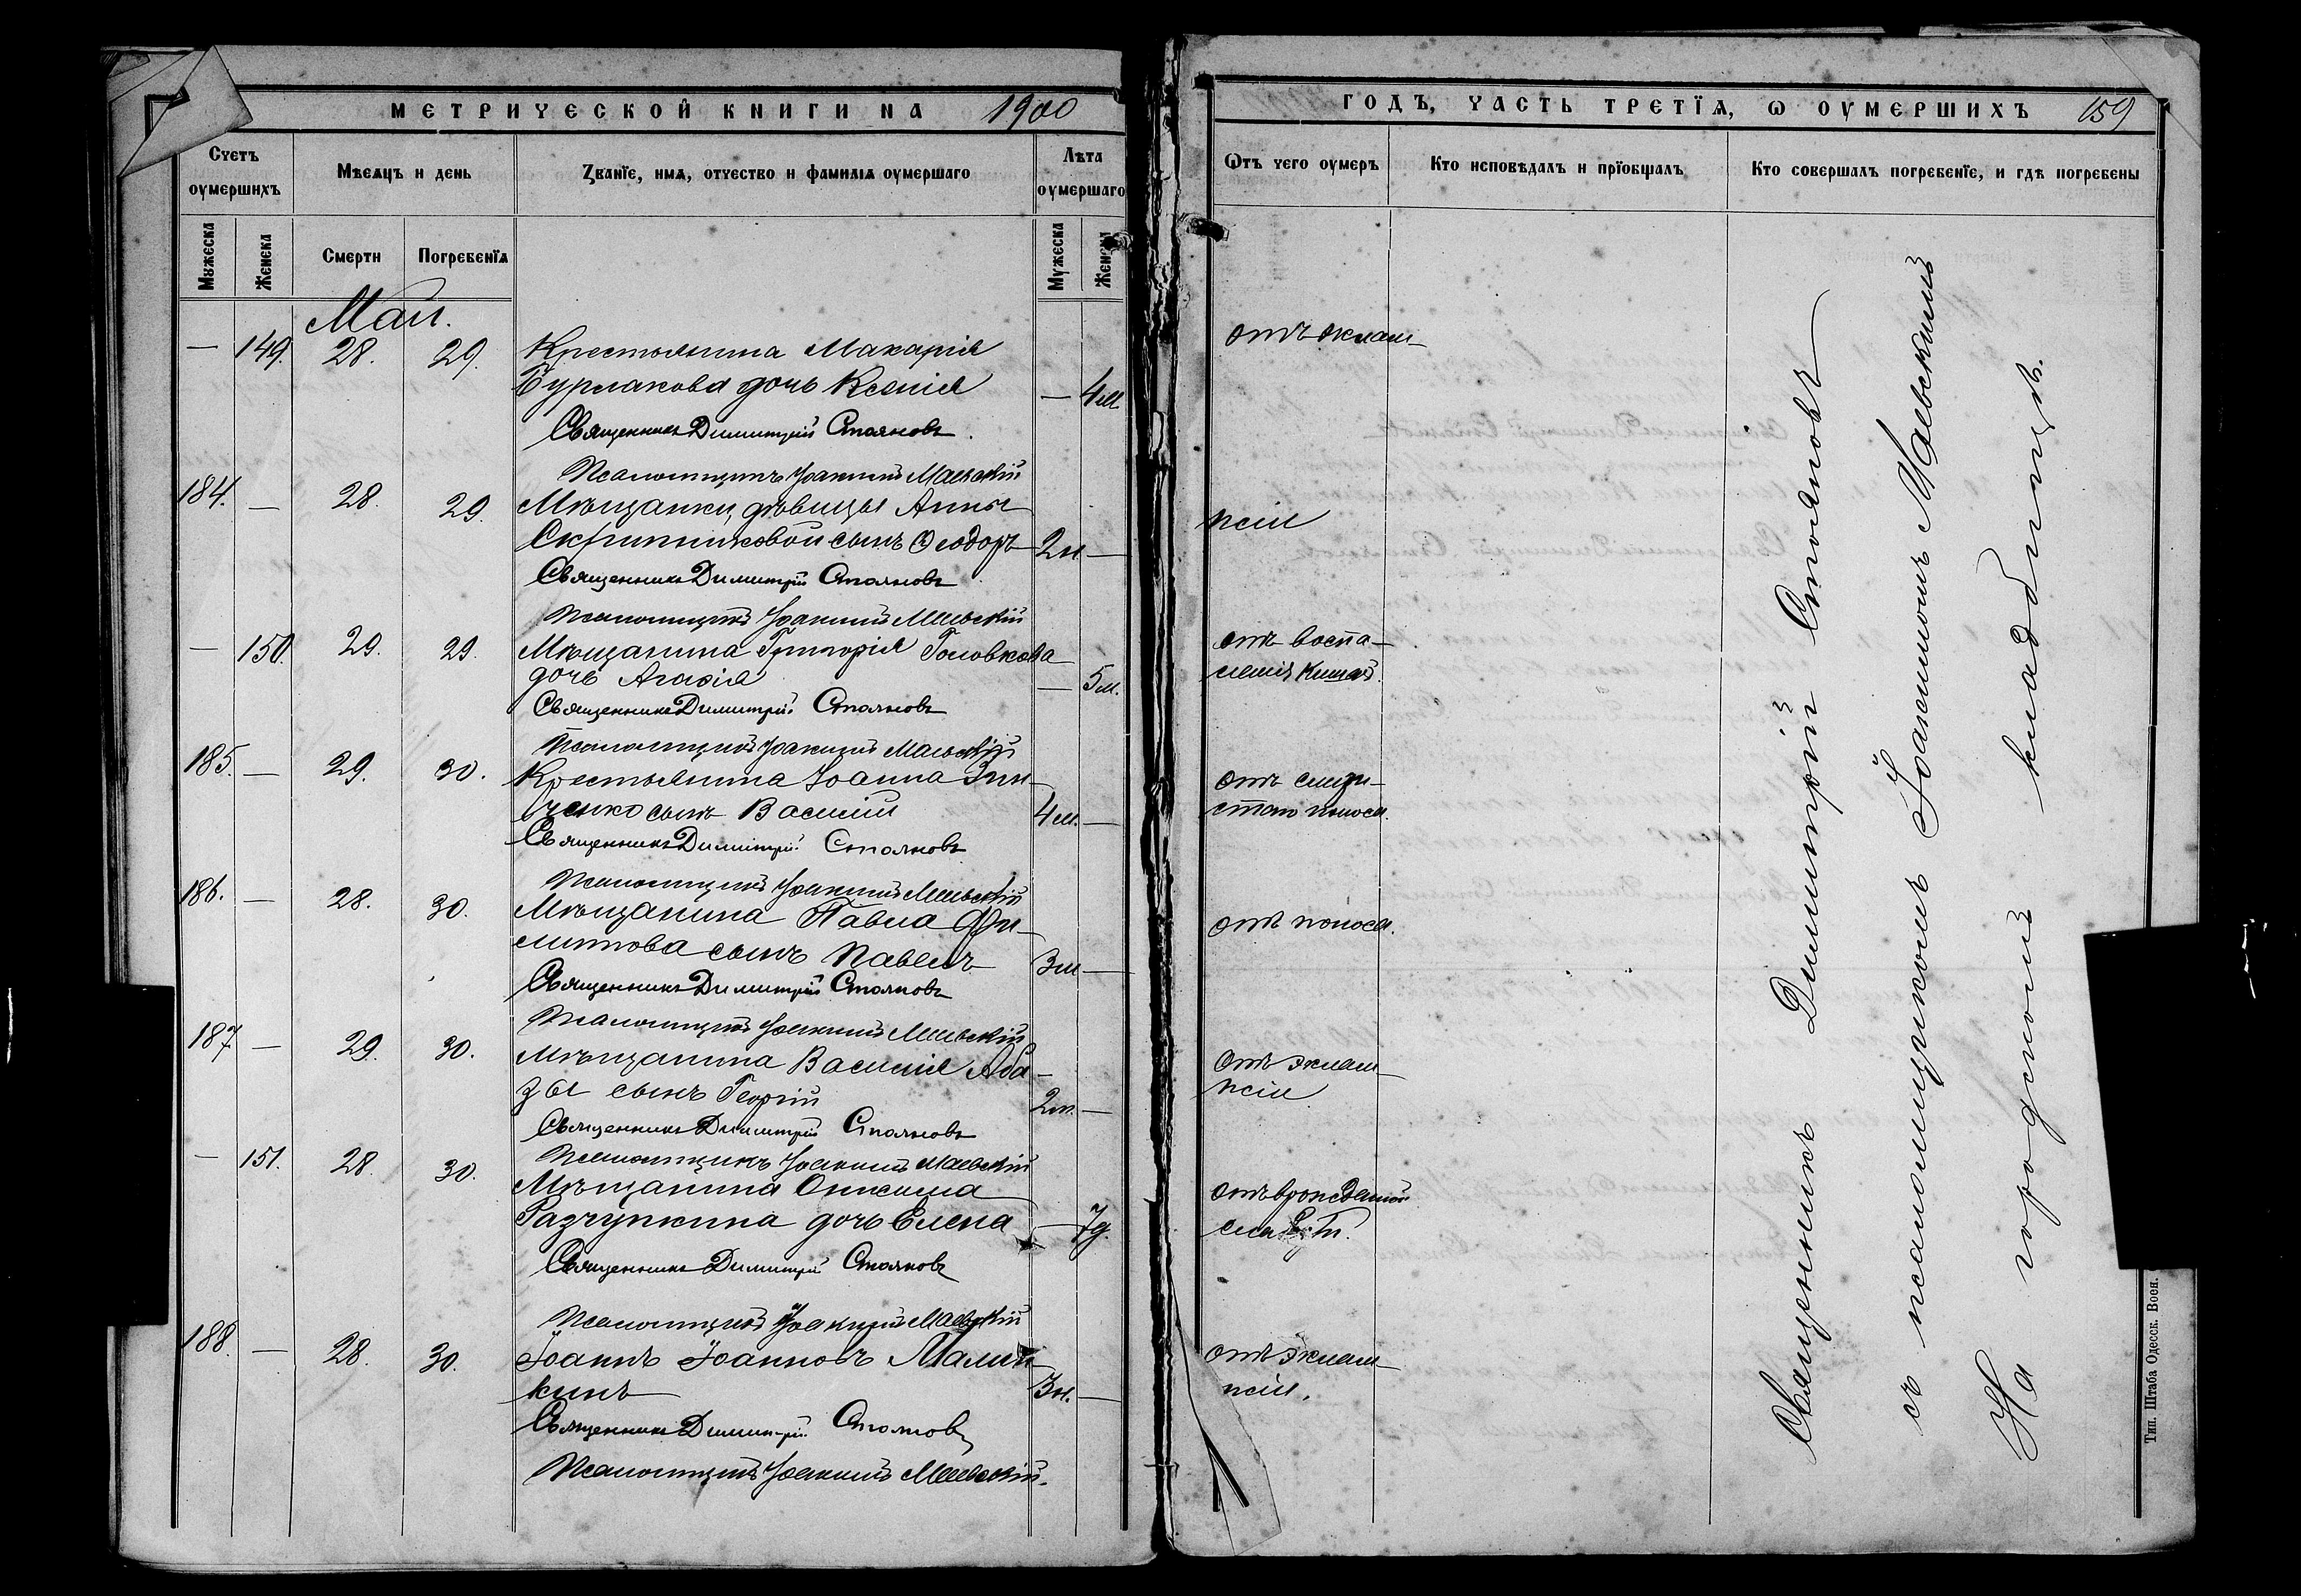 МЕТРИЧЕСКОЙ КНИГИ НА 1900
Счетъ оумершихъ
Мѣсяцъ и день
Званїе, имя, отчество и фамилїя оумершаго
Лѣта оумершаго
Мужеска
Женска
Смерти
Погребенїя
Мужеска
Женска
Май.
— 149. 28. 29. Крестьянина Макарія
Бурлакова дочь Ксенія — 4 м.
Священникъ Димитрій Стояновъ.
Псаломщикъ Іоакимъ Маевскій
184. — 28. 29. Мѣщанки, дѣвицы Анны
Скрипниковой сынъ Ѳеодоръ 2 н —
Священникъ Димитрій Стояновъ
Псаломщикъ Іоакимъ Маевскій
— 150. 29. 29. Мѣщанина Григорія Головкова
дочь Агафія — 5 м.
Священникъ Димитрій Стояновъ
Псаломщикъ Іоакимъ Маевскій
185. — 29. 30. Крестьянина Іоанна Зин-
ченко сынъ Василій 4 м. —
Священникъ Димитрій Стояновъ
Псаломщикъ Іоакимъ Маевскій
186. — 28. 30. Мѣщанина Павла Фи-
липова сынъ Павелъ 3 м —
Священникъ Димитрій Стояновъ
Псаломщикъ Іоакимъ Маевскій
187 — 29. 30. Мѣщанина Василія Аба-
зы сынъ Георгій —
Священникъ Димитрій Стояновъ
Псаломщикъ Іоакимъ Маевскій
— 151. 28. 30. Мѣщанина Онисима
Разчупкина дочь Елена — 7 д.
Священникъ Димитрій Стояновъ
Псаломщикъ Іоакимъ Маевскій
188. — 28. 30. Іоаннъ Іоанновъ Малы-
кинъ 3 н. —
Священникъ Димитрій Стояновъ
Псаломщикъ Іоакимъ Маевскій.
ГОДЪ, ЧАСТЬ ТРЕТЇЯ, Ѡ ОУМЕРШИХЪ 159
Ѿтъ чего оумеръ
Кто исповѣдалъ и прїобщалъ
Кто совершалъ погребенїе, и гдѣ погребены
отъ эклам-
псіи
отъ воспа-
ленія кишекъ.
отъ слизи-
стаго поноса.
отъ поноса.
отъ эклам-
псіи
отъ врожденной
слаб.
отъ эклам-
псіи.
Священникъ Димитрій Стояновъ
съ псаломщикомъ Іоакимомъ Маевскимъ
На городскомъ кладбищѣ.
Тип. Штаба Одесск. Воен.